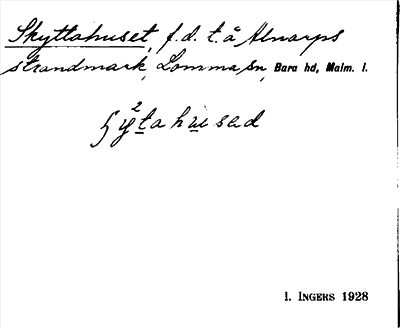 Skyttahuset, f.d. t. å Alnarps
strandmark, Lomma sn, Bara hd, Malm. l.
I. INGERS 1928